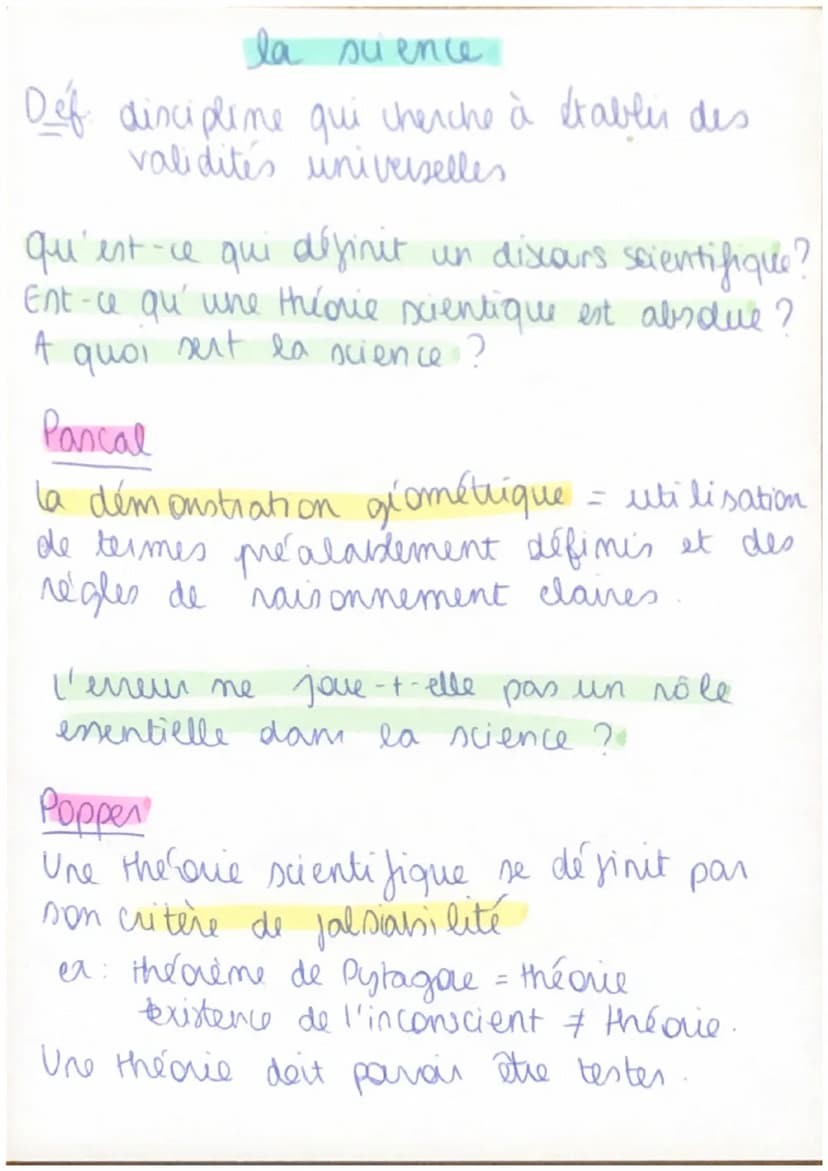 la science
Déf discipline qui cherche à établir des
validités universelles
qu'est-ce qui définit un discours scientifique?
Est-ce qu'une théorie scientique est absolue ?
A quoi sert la science ?
Pascal
la démonstration géométrique = utilisation
de termes préalablement définis et des
règles de raisonnement claires.
L'erreur ne joue-t-elle pas un rôle
essentielle dans la science ?
Popper
Une théorie scientifique se définit par
son critère de falsiabilité
ex: théorème de Pytagore = théorie
existence de l'inconscient ≠ théorie.
Une théorie doit pouvoir être tester.